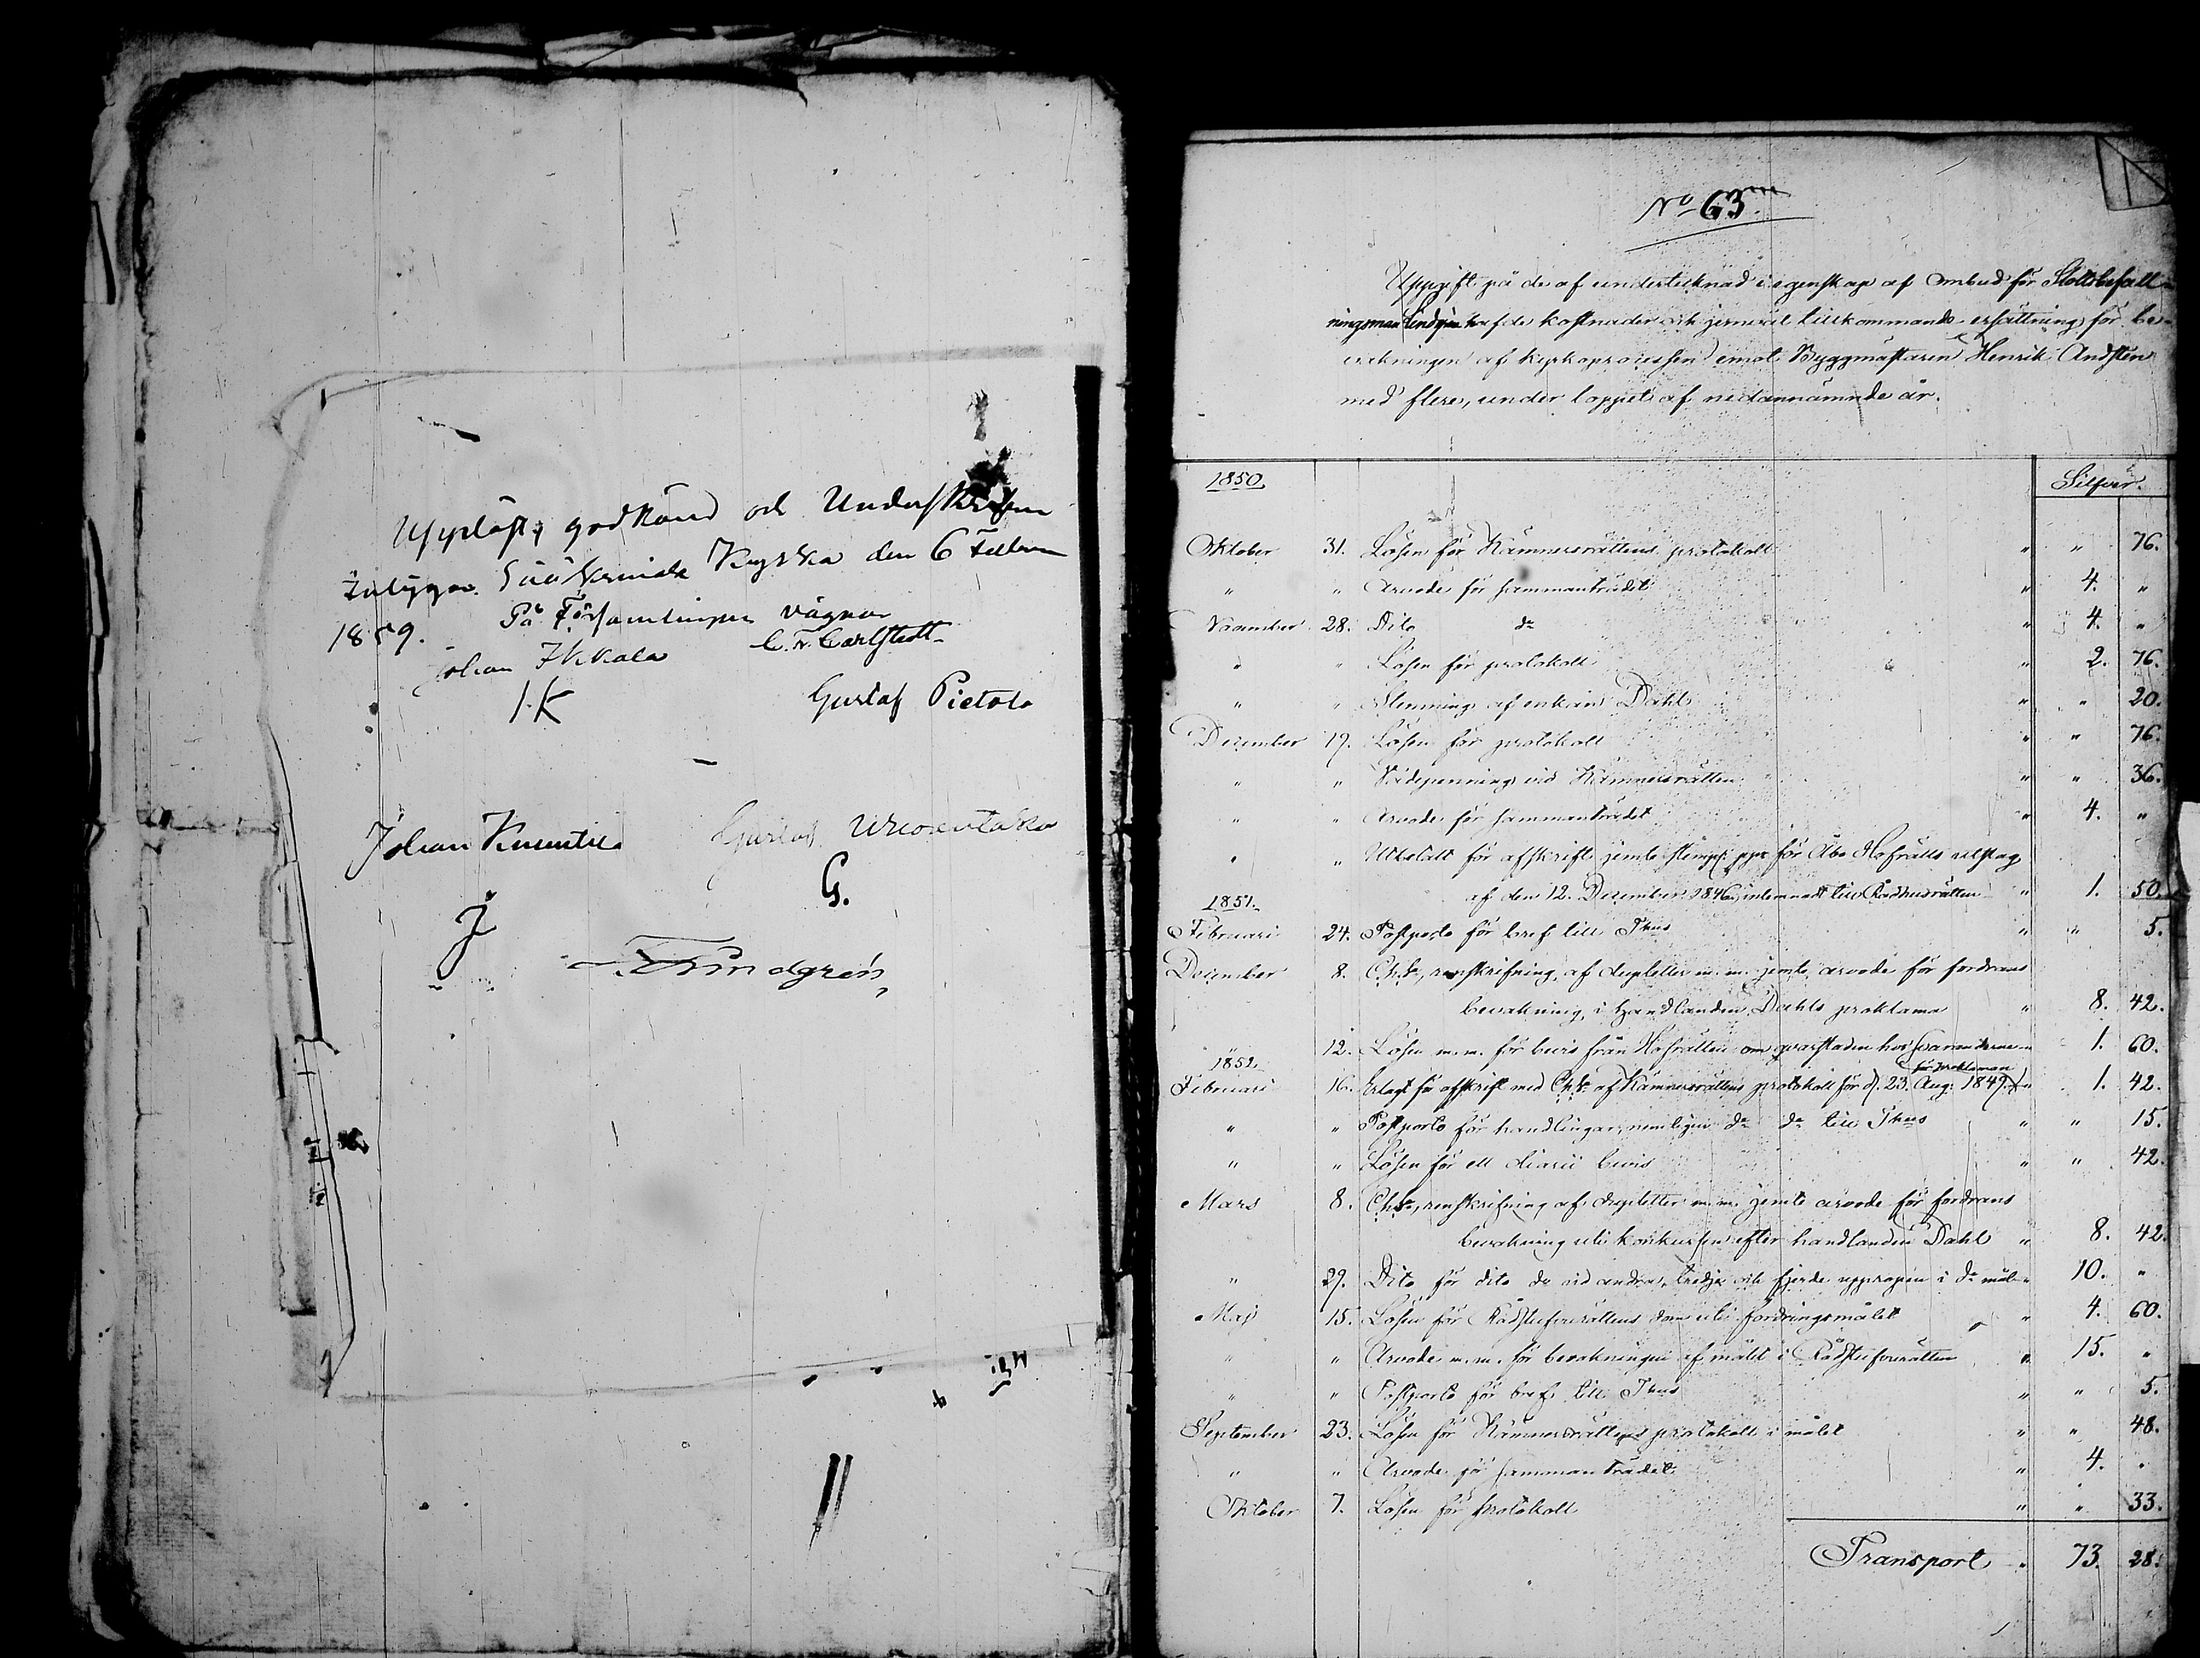 Uppläst, godkänd och Underskrifven
intygar. Kyrka den 6 Februari
1859. På Församlingens vägnar
Johan Ikkala C. F. Carlstedt
I·K Gustaf Pietola
Johan Knuutila Gustaf
J G.
Lindgrén
No 63
Uppgift på de af undertecknad i egenskap af ombud för Slottsbefall-
ningsman Lindgren hafde kostnader och jemväl tillkommande ersättning för be-
vakningen af kyrkoprocessen emot Byggmästaren Henrik Andsten
med flere, under loppet af nedannämnde år.
1850. Silfver.
Oktober 31. Lösen för Kämnersrättens protokoll " " 76.
" " Arvode för sammanträdet " 4. "
November 28. Dito do " 4. "
" " Lösen för protokoll " 2. 76.
" " Stemning af enkan Dahl " " 20.
December 19. Lösen för protokoll " " 76.
" " Rådepenning vid Kämnersrätten " " 36.
" " Arvode för sammanträdet " 4. "
" " Utbetalt för afskrift jemte stemp: ppr för Åbo Hofrätts utslag
af den 12. December 1846, inlemnadt till Rådhusrätten " 1. 50.
1851.
Februari 24. Postporto för bref till Thus " " 5.
December 8. Ch:Sa, renskrifning af dupletter m. m. jemte arvode för fordrans
bevakning, i handlanden Dahls proklama " 8. 42.
" 12. Lösen m. m. för bevis från Hofrätten om qvarstaden hos svaranderne " 1. 60.
1852. för proklaman
Februari 16. Erlagt för afskrift med Ch:Sa af Kämnersrättens protokoll för d. 23. Aug: 1849. " 1. 42.
" " Postporto för handlingar, nemligen do do till Thus " " 15.
" " Lösen för ett diarii bevis " " 42.
Mars 8. Ch:Sa, renskrifning af dupletter m. m. jemte arvode för fordrans
bevakning uti konkursen efter handlanden Dahl " 8. 42.
" 29. Dito för dito do vid andra, tredje och fjerde uppropen i do mål " 10. "
Maj 15. Lösen för Rådstufvurättens dom uti fordringsmålet " 4. 60.
" " Arvode m. m. för bevakningen af målet i Rådstufvurätten " 15. "
" " Postporto för bref till Thus " " 5.
September 23. Lösen för Kämnersrättens protokoll i målet " " 48.
" " Arvode för sammanträdet " 4. "
Oktober 7. Lösen för protokoll " " 33.
Transport " 73. 28.